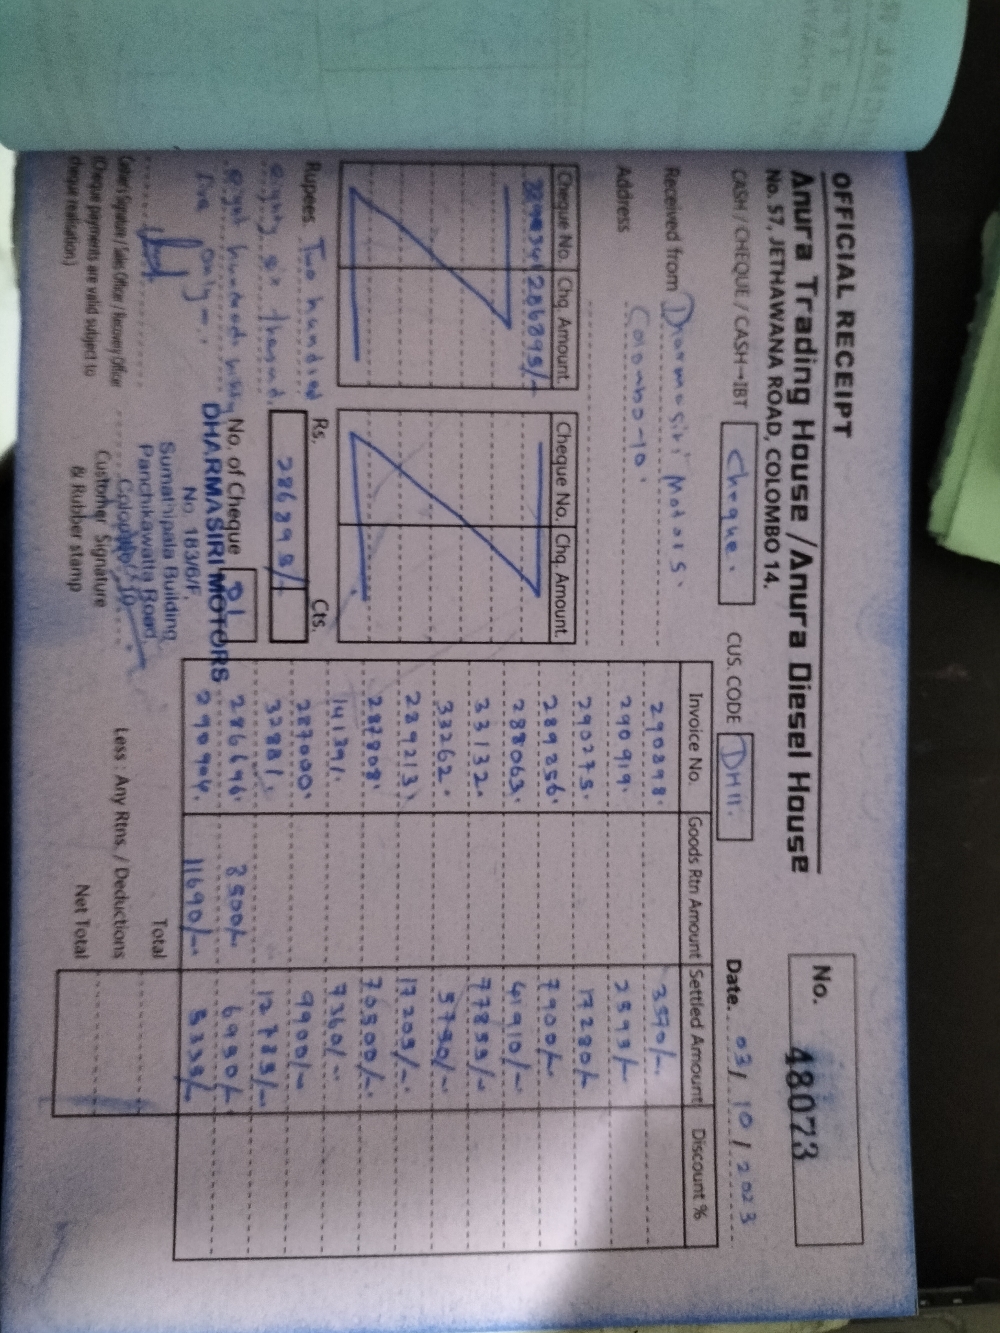 OFFICIAL RECEIPT
Anura Trading House / Anura Diesel House
No. 57, JETHAWANA ROAD, COLOMBO 14.
No. 48073
CASH / CHEQUE / CASH→IBT Cheque. CUS. CODE DH11. Date. 03/10/2023
Received from Dharmasiri Motors.
Address Colombo-10.
Cheque No. Chq. Amount. Cheque No. Chq. Amount.
286895/-
Rupees Two hundred
eighty six thousand
eight hundred ninety
five only-.
Rs. Cts.
286895/-
No. of Cheque 01
DHARMASIRI MOTORS
No. 183/6/F,
Sumathipala Building,
Panchikawatta Road,
Colombo - 10.
Customer Signature
& Rubber stamp
(Cheque payments are valid subject to
cheque realisation.)
Invoice No. Goods Rtn Amount Settled Amount Discount %
290898. 3570/-
290919. 2593/-
290275. 17280/-
289856. 7900/-
288063. 41910/-
33132. 77855/-
33262. 5790/-
289213. 17205/-
70500/-
141391. 7360/-
287000. 9900/-
32881. 12785/-
286696. 8500/- 6950/-
290904. 11690/-
Total
Less : Any Rtns. / Deductions
Net Total